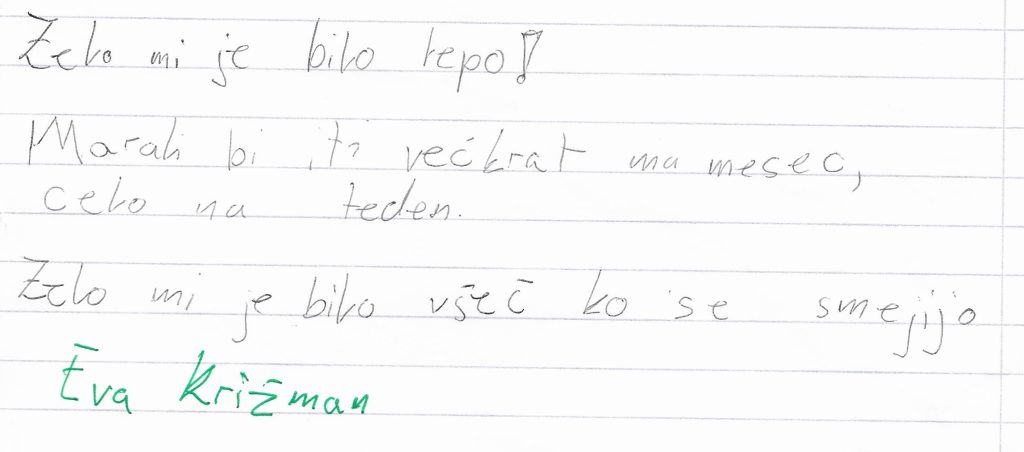 Zelo mi je bilo lepo!
Morali bi iti večkrat na mesec,
celo na teden.
Zelo mi je bilo všeč ko se smejijo
Eva Križman